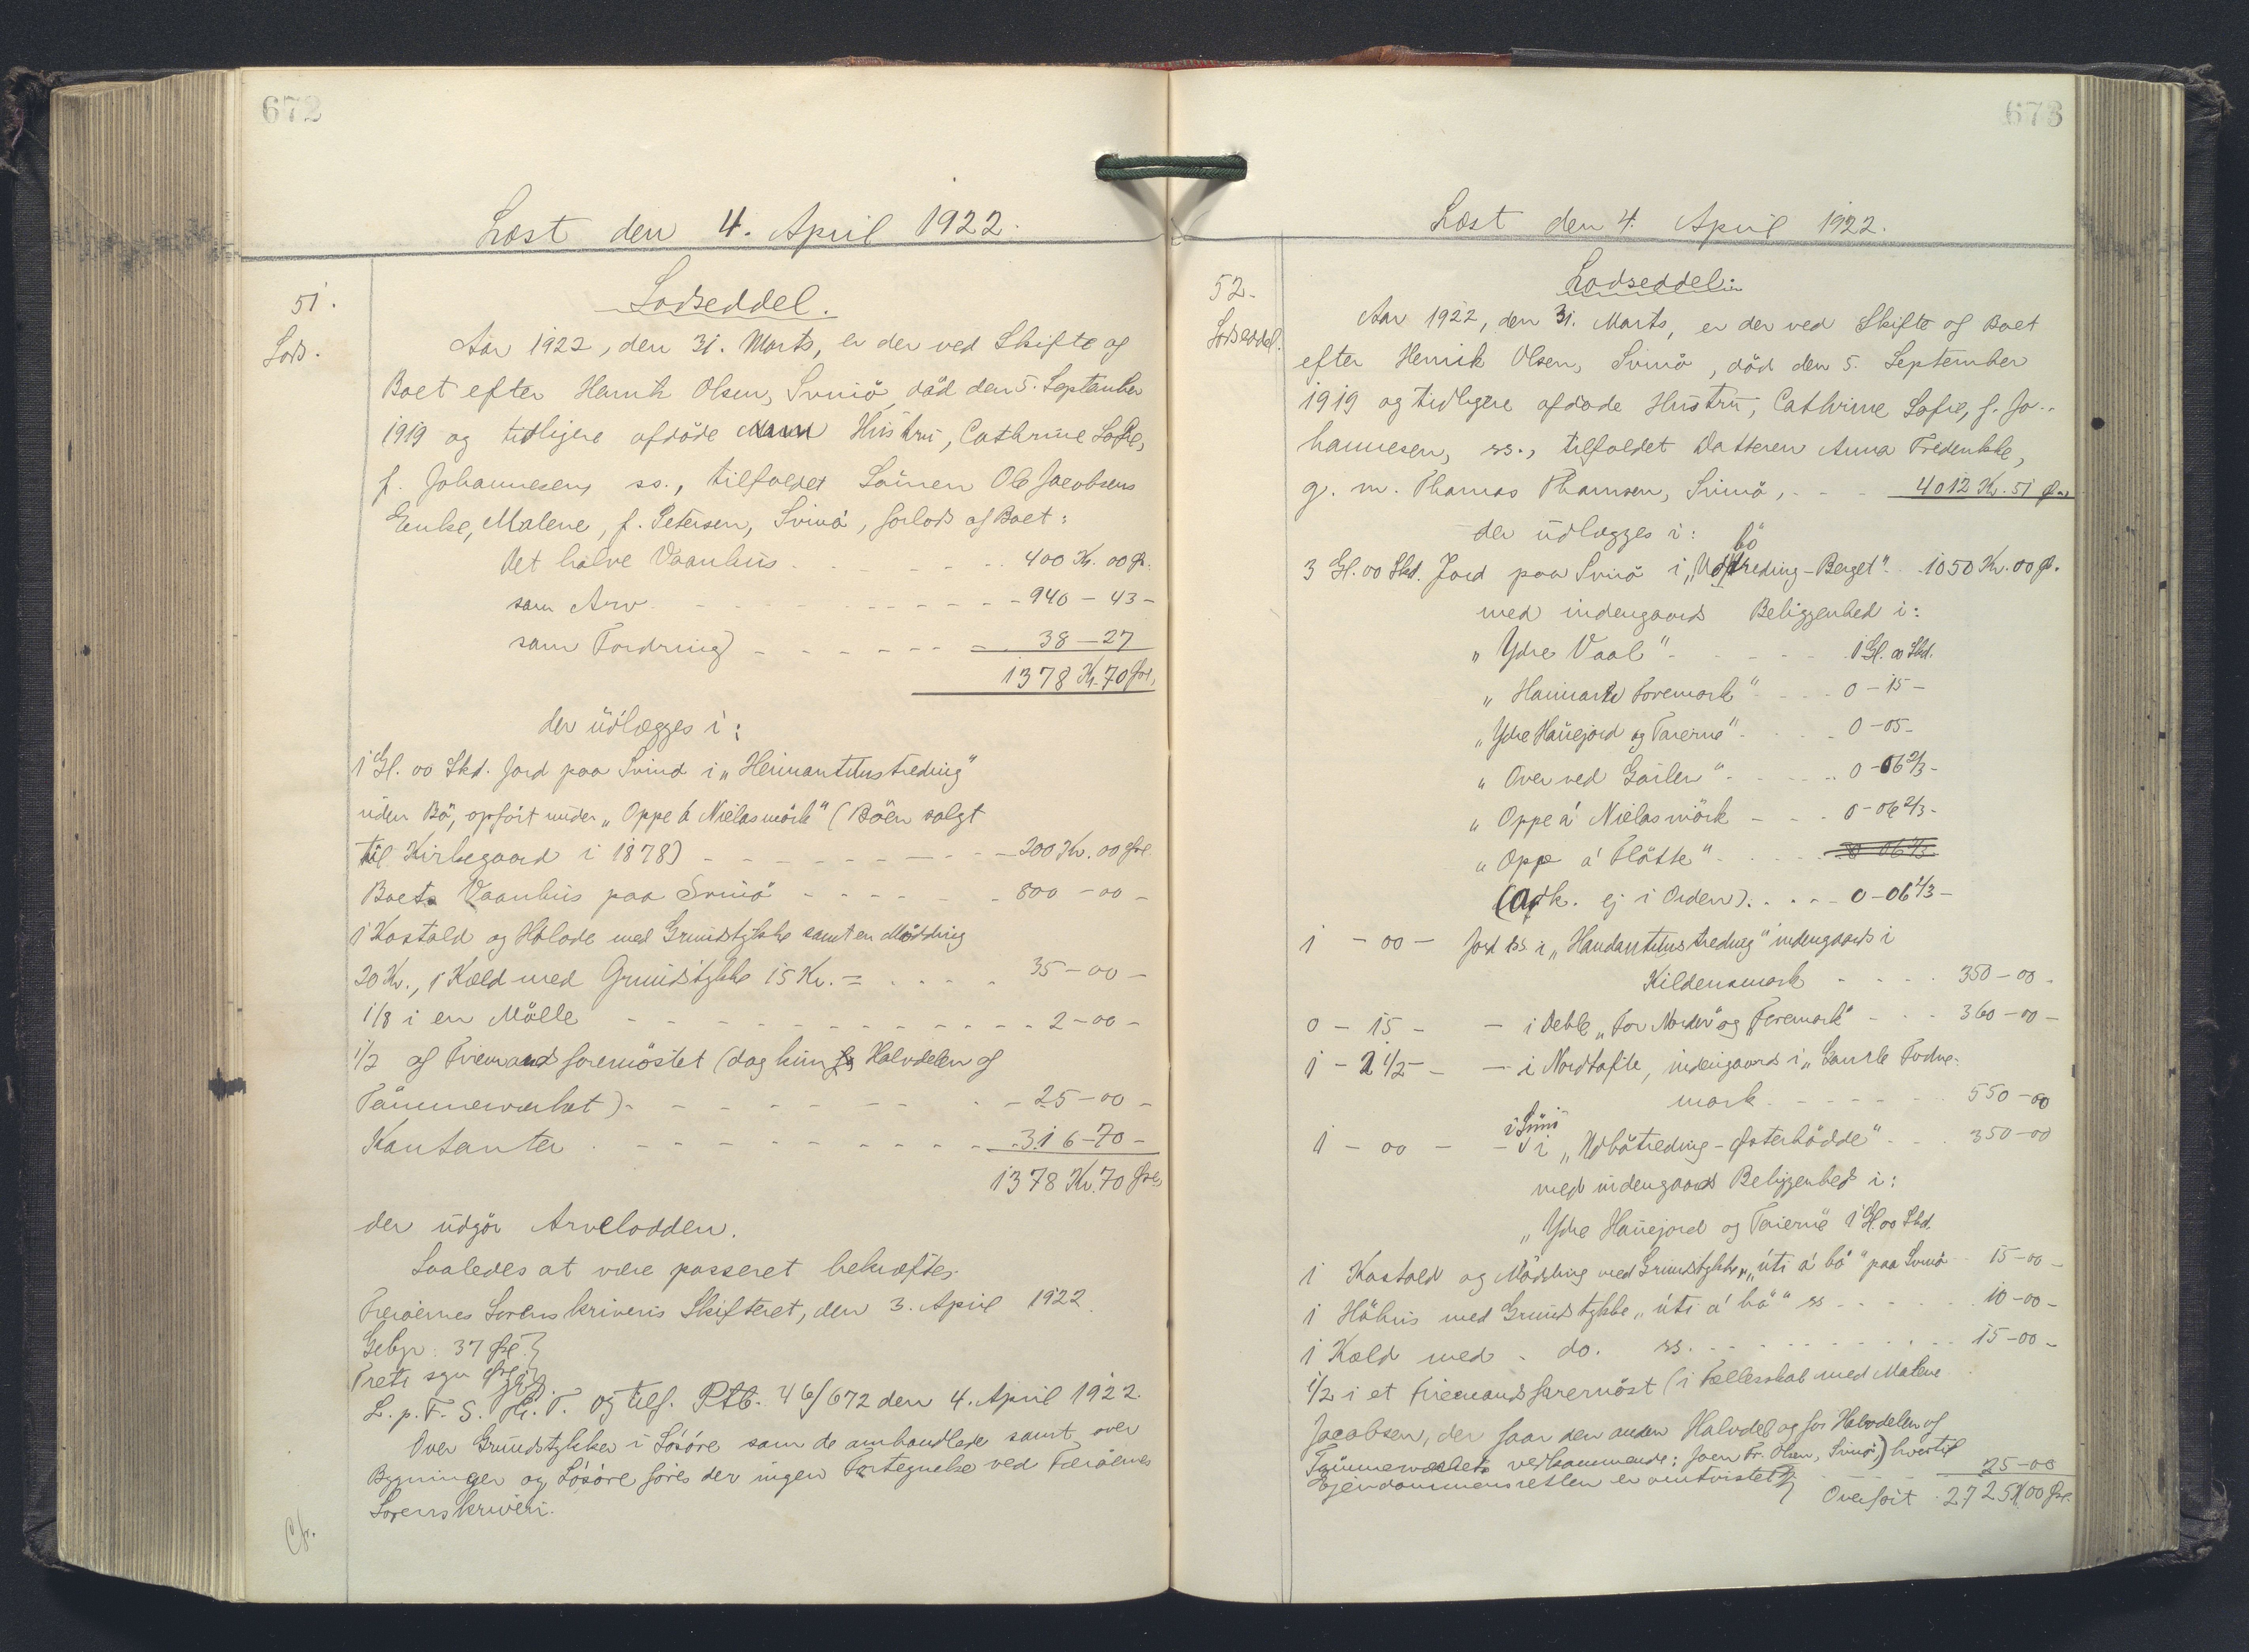 672
Læst den 4. April 1922.
51.
Lods.
Lodseddel.
Aar 1922, den 31. Marts, er der ved Skifte og
Boet efter Henrik Olsen, Svinö, död den 5. September
1919 og tidligere afdöde Hustru, Cathrine Sofie,
f. Johannesen, ss., tilfaldet Sönnen Ole Jacobsens
Enke, Malene, f. Petersen, Svinö, forlods af Boet:
Det halve Vaanhus 400 Kr. 00 Ø.
som Arv 940 - 43 -
som Fordring 38 - 27
1378 Kr. 70 Øre,
der udlægges i:
1 Gl. 00 Skd. Jord paa Svinö i „Heimantitustreding"
uden Bö, opfört under „Oppe á Nielasmörk" (Böen solgt
til Kirkegaard i 1878) 200 Kr. 00 Øre.
Boets Vaanhus paa Svinö 800 - 00 -
1 Kostald og Hölade med Grundstykke samt en Mödding
20 Kr., 1 Kæld med Grundstykke 15 Kr. = 35 - 00 -
1/8 i en Mölle 2 - 00 -
1/2 af Firemandsforemöstet (dog kun Halvdelen af
Tömmerværket) 25 - 00 -
Kontanter 316 - 70 -
1378 Kr. 70 Øre,
der udgör Arvelodden.
Saaledes at være passeret bekræftes.
Færöernes Sorenskriveris Skifteret, den 3. April 1922.
Gebyr. 37 Øre.
Treti syv Øre
L. p. F. S. H. T. og tilf. Ptb. 46/672 den 4. April 1922.
Over Grundstykker i Lösöre som de omhandlede samt over
Bygninger og Lösöre föres der ingen Fortegnelse ved Færöernes
Sorenskriveri.
Cfr.
673
Læst den 4. April 1922.
52.
Lodseddel.
Lodseddel.
Aar 1922, den 31. Marts, er der ved Skifte of Boet
efter Henrik Olsen, Svinö, död den 5. September
1919 og tidligere afdöde Hustru, Cathrine Sofie, f. Jo-
hannesen, ss., tilfaldet Datteren Anna Fredrikke,
g. m. Thomas Thomsen, Svinö, 4012 Kr. 51 Ø.
der udlægges i:
bö
3 Gl. 00 Skd. Jord paa Svinö i „Udtreding-Berget" 1050 Kr. 00 Ø.
med indengaards Beliggenhed i:
„Ydre Vaal" 1 Gl. 00 Skd.
„Haimaste Foremark" 0 - 15 -
„Ydre Hauejord og Taierne" 0 - 05 -
„Over ved Garler" 0 - 06 2/3 -
„Oppe á Nielasmörk 0 - 06 2/3 -
„Oppe á Flötte"
(Adk. ej i Orden) 0 - 06 1/3 -
1 - 00 - Jord ss i „Handantitustreding" indengaards i
Kildensmark 350 - 00 -
0 - 15 - - i Deble „For Norden" og Foremark" 360 - 00 -
1 - 2 1/2 - - i Nordtofte, indengaards i „Gamle Fodne-
mark 550 - 00
i Svinö
1 - 00 - - i „Udbötreding-Østerbödde" 350 - 00
med indengaards Beliggenhed i:
„Ydre Hauejord og Taierne 1 Gl. 00 Skd.
1 Kostald og Mödding med Grundstykke, „úti á bö" paa Svinö 15 - 00 -
1 Höhus med Grundstykke „úti á bö" ss 10 - 00 -
1 Kæld med do. ss. 15 - 00 -
1/2 i et Firemandsforemöst (i Fællesskab med Malene
Jacobsen, der faar den anden Halvdel og for Halvdelen af
Tömmerværkets vedkommende: Joen Fr. Olsen, Svinö) hvortil
Ejendomsretten er omtvistet 25 - 00
Overfört 2725 Kr. 00 Øre.